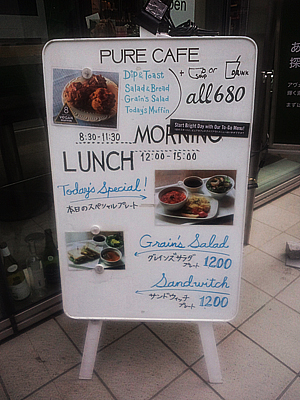 PURE CAFE
Dip & Toast
Salad & Bread
Grain's Salad
Today's Muffin
+ Soup or Drink
all 680
Start Bright Day with Our To Go Menu!
8:30-11:30 MORNING
LUNCH 12:00-15:00
Today's Special!
本日のスペシャルプレート
Grain's Salad
グレインズサラダプレート 1200
Sandwitch
サンドウィッチプレート 1200